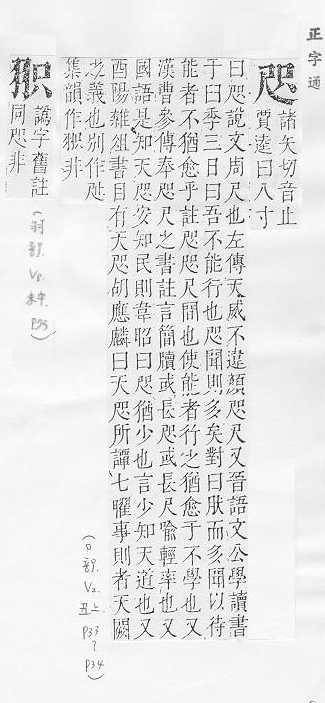 正字通
咫 諸矢切音止
賈逵曰八寸
曰咫說文周尺也左傳天威不違顏咫尺又晉語文公學讀書
于臼季三日曰吾不能行也咫聞則多矣對曰肰而多聞以待
能者不猶愈乎註咫咫尺間也使能者行之猶愈于不學也又
漢曹參傳奉咫尺之書註言簡牘或長咫或長尺喻輕率也又
國語是知天咫安知民則韋昭曰咫猶少也言少知天道也又
酉陽雜俎書目有天咫胡應麟曰天咫所譚七曜事則者天闕
之義也別作
集韻作 非
譌字舊註
同咫非
P35
(口部,
V2.
丑上,
P33
P34)